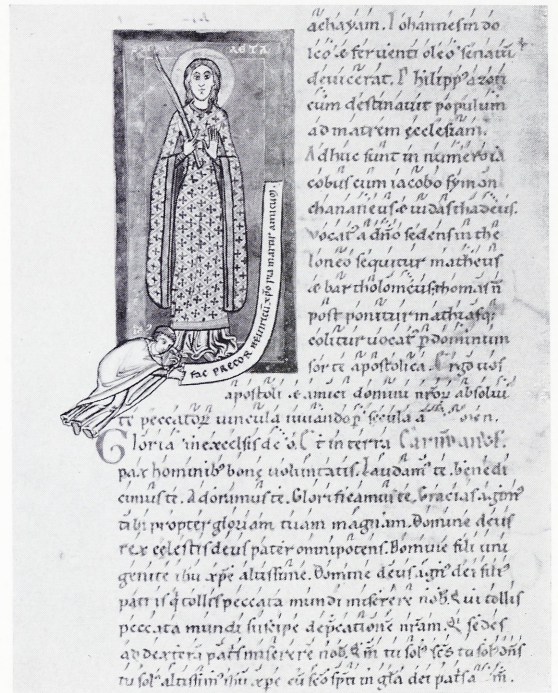 achayam. Iohannes in do
leo & ferventi oleo senatū
devicerat. Philipp' azoti
cum destinavit populum
ad matrem ęcclesiam.
Adhuc sunt in numero ia
cobus cum iacobo symon
chananeus & iudas thadeus.
vocat' a dño sedens in the
loneo sequitur matheus
& bartholomeus; thomas
post ponitur mathias q;
colitur vocat' p dominum
sorte apostolica. Ergo vos
FAC PRECOR
apostoli & amici domini nror absolvi
te peccator vincula
Gloria in excelsis deo. Et in terra
pax hominib' bonę voluntatis. Laudam' te. benedi
cimus te. Adoramus te. Glorificamus te. Gracias agim'
tibi propter gloriam tuam magnam. Domine deus
rex celestis deus pater omnipotens. Domine fili uni
genite ihu xpe altissime. Domine deus agn' dei fili'
patris q tollis peccata mundi miserere nob. Qui tollis
peccata mundi suscipe depcatione nram. Qi sedes
ad dextera patris miserere nob. Qm tu sol' scs tu sol' dñs
tu sol' altissim' ihu xpe cu sco spu in gla dei patris